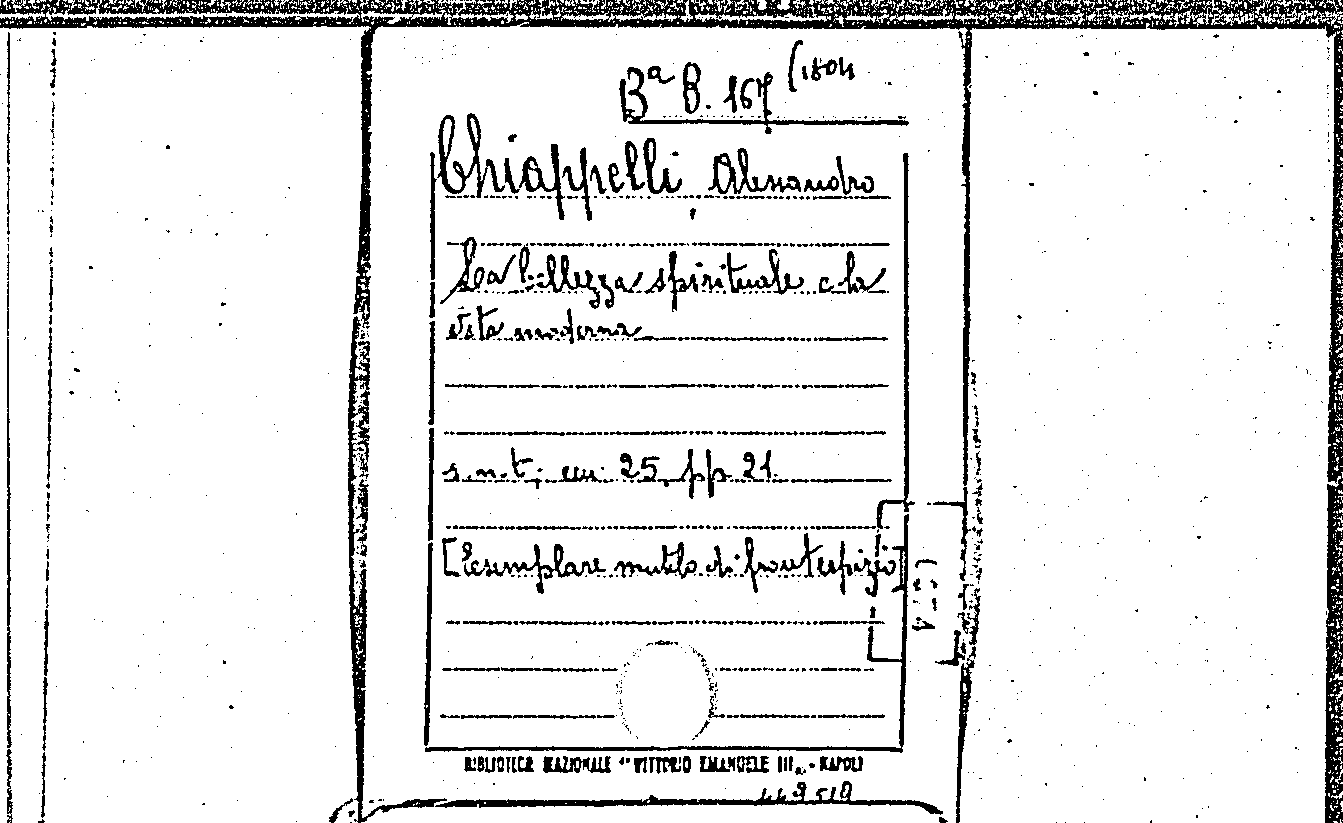 Bª B. 167 (1804
Chiappelli, Alessandro
La bellezza spirituale e la
vita moderna
s.n.t; cm. 25, pp 21.
[Esemplare mutilo di frontespizio]
BIBLIOTECA NAZIONALE "VITTORIO EMANUELE III" - NAPOLI